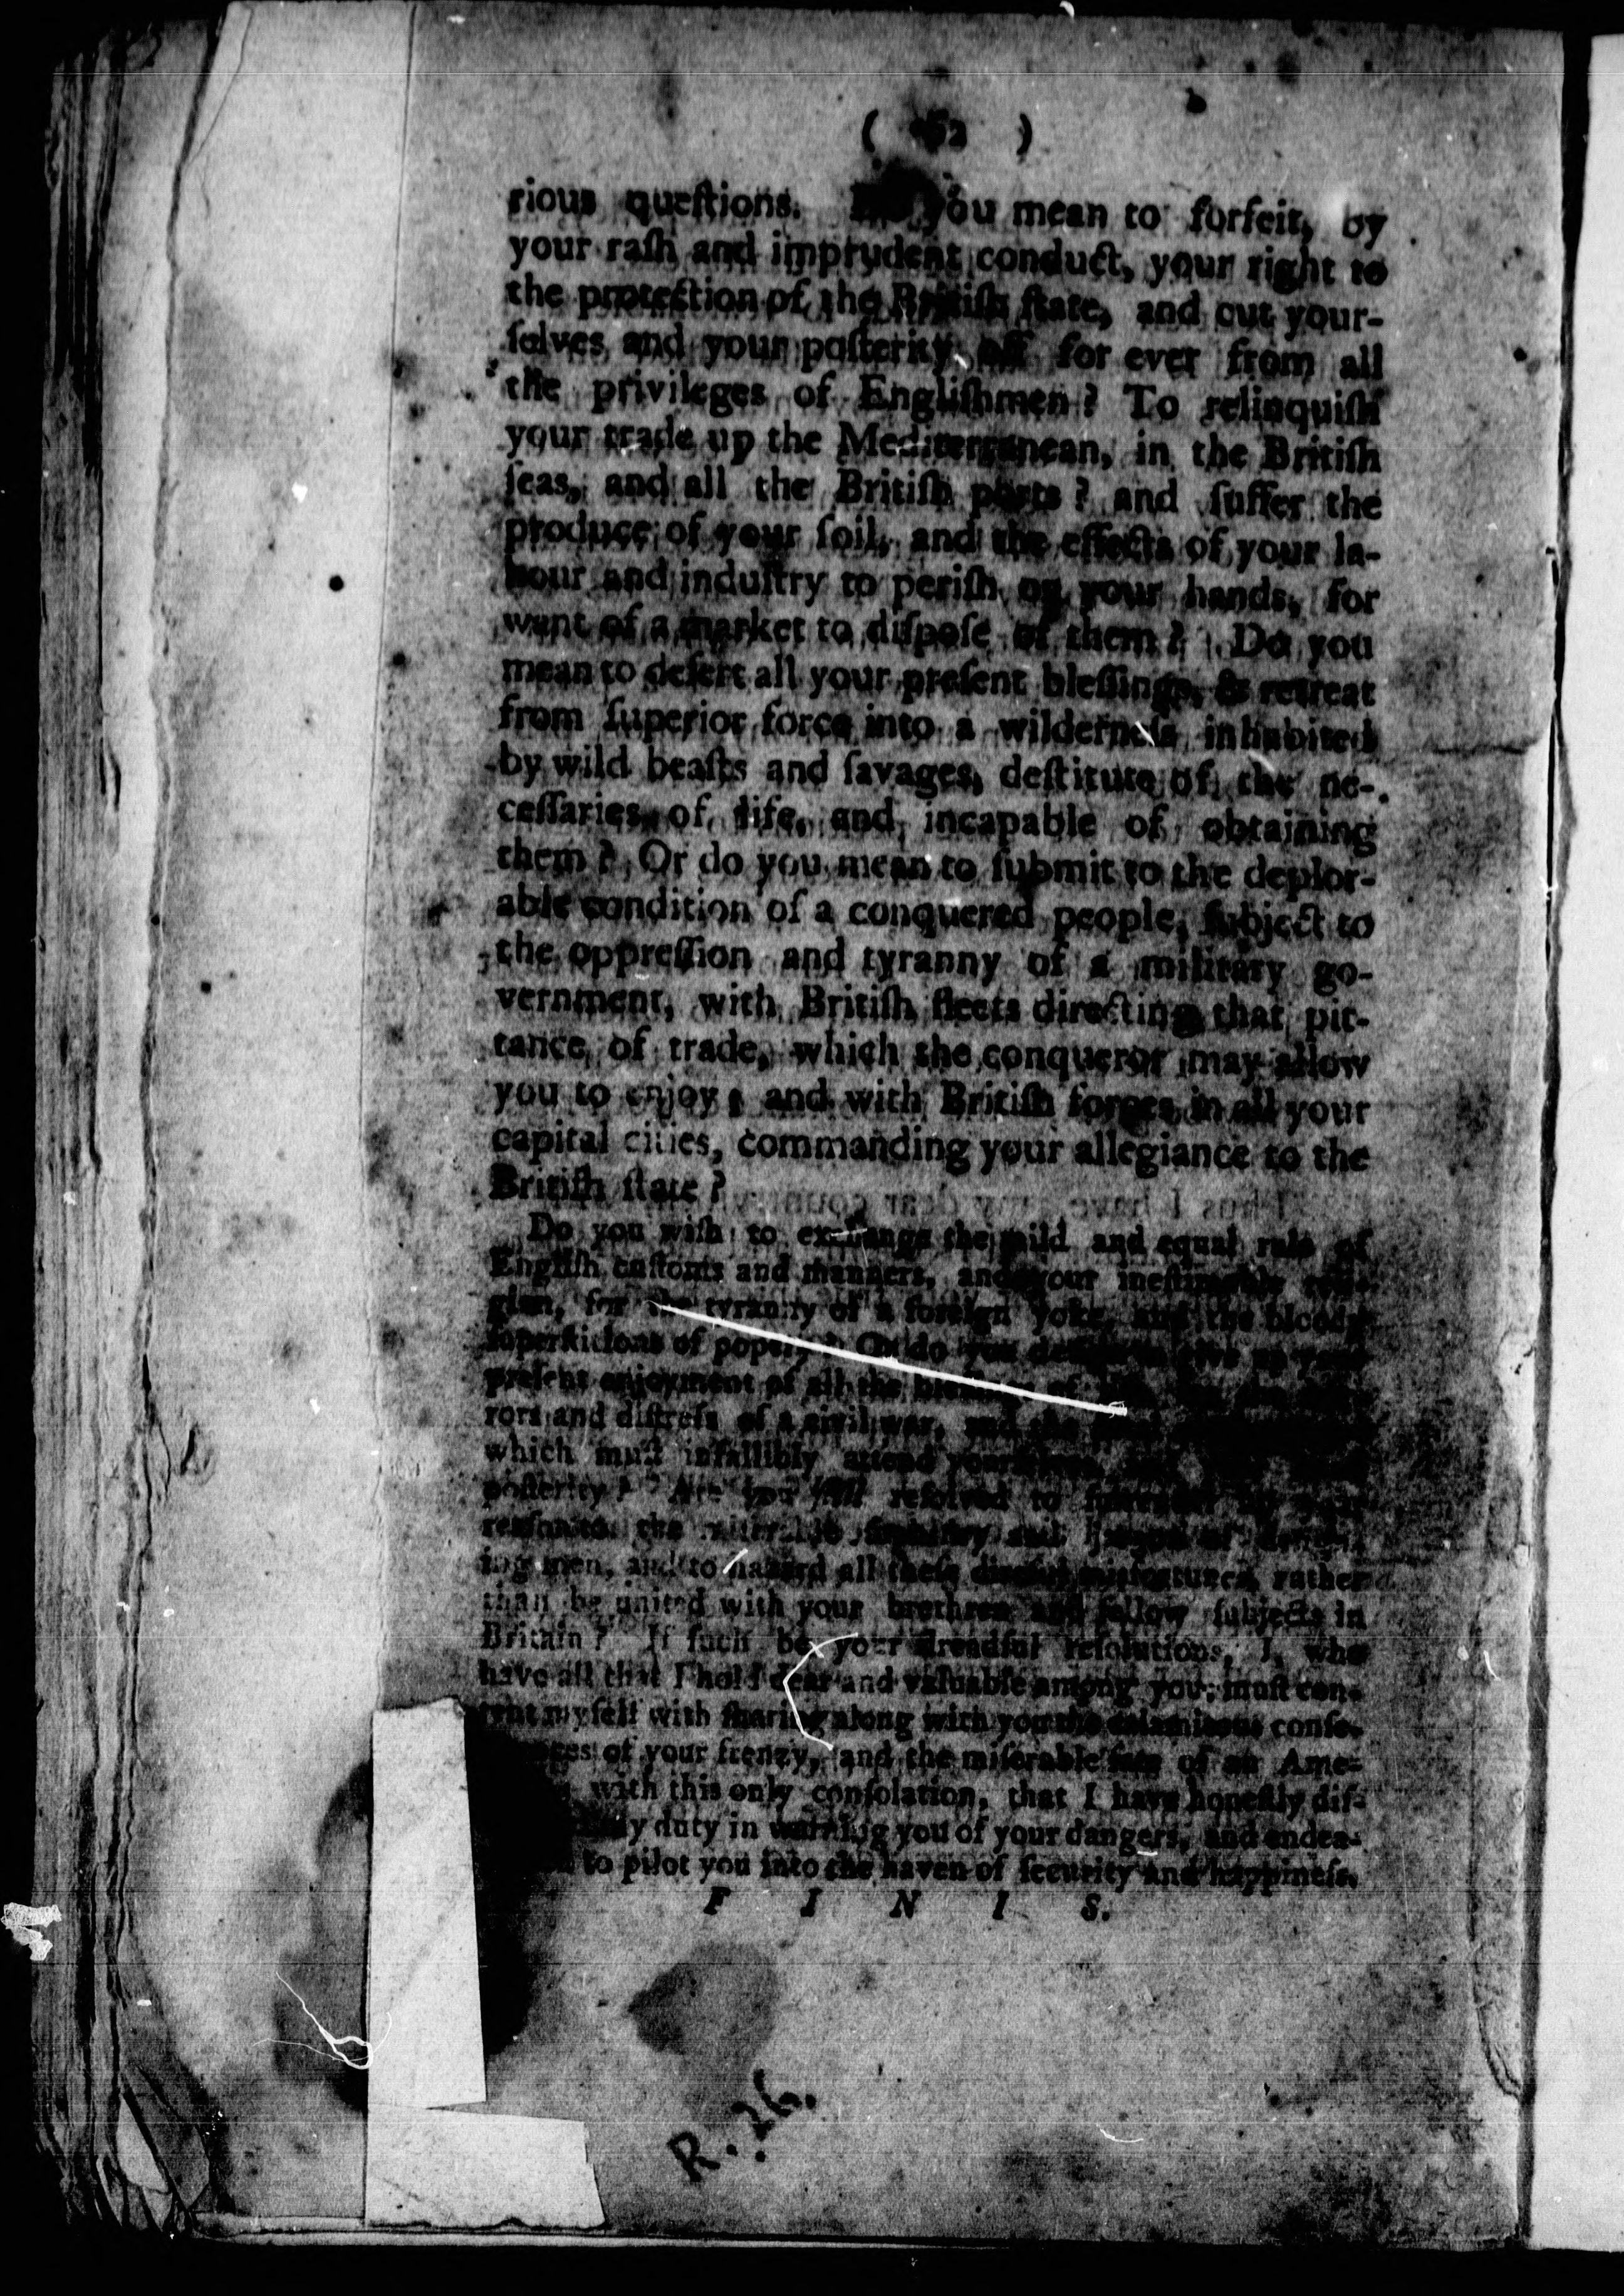 ( 62 )
rious queſtions. you mean to forfeit, by
your raſh and imprudent conduct, your right to
the protection of the Britiſh ſtate, and cut your-
ſelves and your poſterity off for ever from all
the privileges of Engliſhmen? To relinquiſh
your trade up the Mediterranean, in the Britiſh
ſeas, and all the Britiſh ports? and ſuffer the
produce of your ſoil, and the effects of your la-
bour and induſtry to periſh on your hands, for
want of a market to diſpoſe of them? Do you
mean to deſert all your preſent bleſſings, & retreat
from ſuperior force into a wilderneſs inhabited
by wild beaſts and ſavages, deſtitute of the ne-
ceſſaries of life, and incapable of obtaining
them? Or do you mean to ſubmit to the deplor-
able condition of a conquered people, ſubject to
the oppreſſion and tyranny of a military go-
vernment, with Britiſh fleets directing that pit-
tance of trade, which the conqueror may allow
you to enjoy; and with Britiſh forces in all your
capital cities, commanding your allegiance to the
Britiſh ſtate?
Do you wiſh to exchange the mild and equal rule of
Engliſh cuſtoms and manners, and your ineſtimable
for the tyranny of a foreign yoke, and the bloody
ſuperſtitions of popery? Or do you
preſent enjoyment of all the
rors and diſtreſs of a civil war, and the
which muſt infallibly attend
poſterity? Are you ſtill reſolved to
reaſon to the and of
ing men, and to hazard all theſe miſfortunes, rather
than be united with your brethren and fellow ſubjects in
Britain? If ſuch be your dreadful reſolutions, I, who
have all that I hold dear and valuable among you, muſt con-
tent myſelf with ſharing along with you the calamitous conſe-
of your frenzy, and the miſerable fate of an Ame-
with this only conſolation, that I have honeſtly diſ-
my duty in warning you of your dangers, and endea-
to pilot you into the haven of ſecurity and happineſs.
F I N I S.
R. 26.